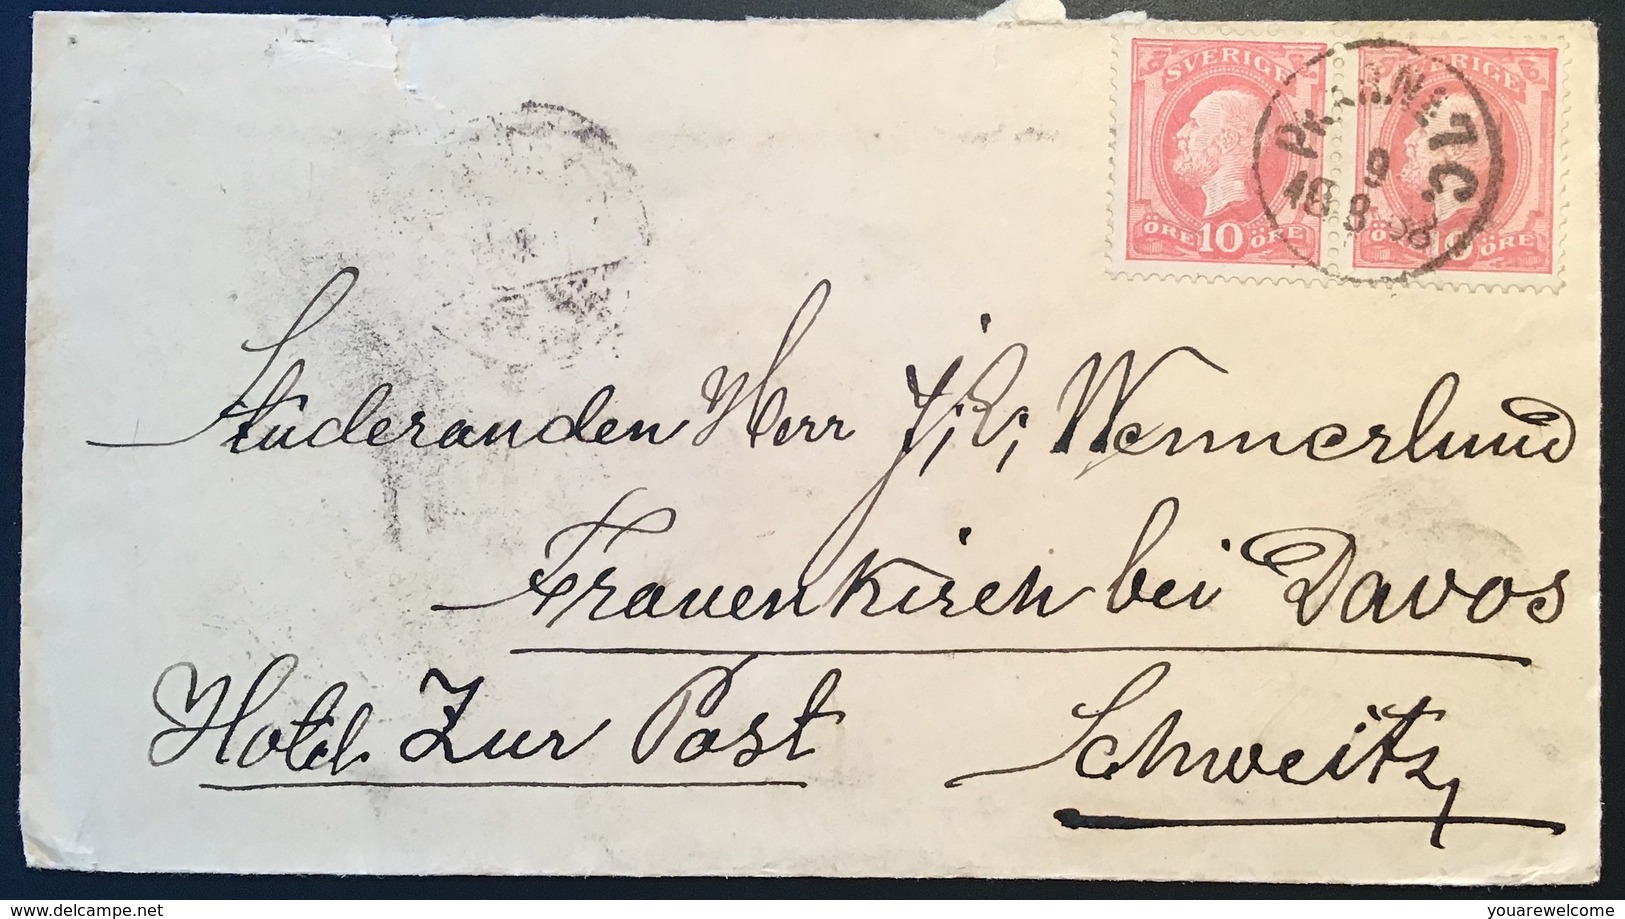 SVERIGE SVERIGE
PKXP.N 47 C
9
18 8 88
ÖRE 10 ÖRE ÖRE 10 ÖRE
Studeranden Herr J. E. Wennerlund
Frauenkirch bei Davos
Hotel Zur Post Schweitz
delcampe.net youarewelcome